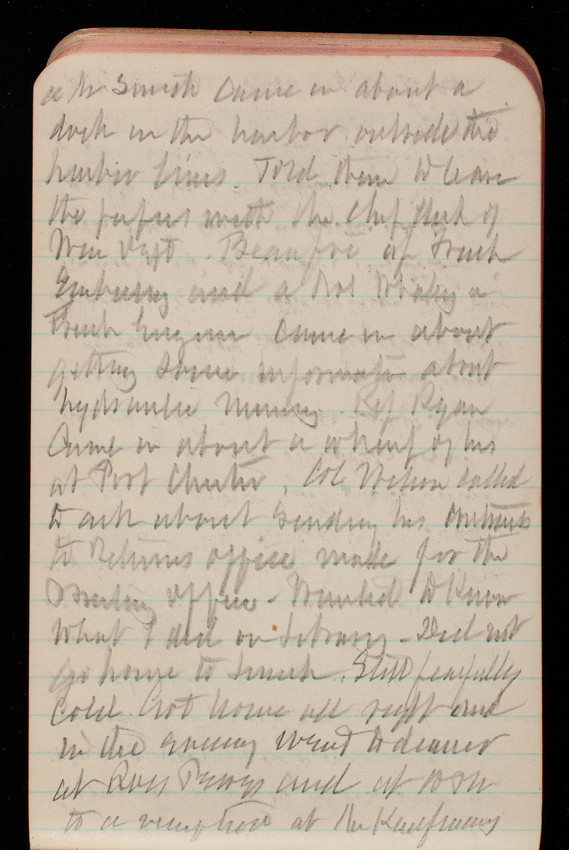 a Mr Smith came in about a
dock in the harbor outside the
harbor lines. Told them to leave
the papers with the Chf Clerk of
War Dept. Beaufre of French
Embassy and a
French Engineer came in about
getting some information about
hydraulic mining. Rep Ryan
came in about a wharf of his
at Port Chester. Col Nelson called
to ask about sending his contracts
to Returns office made for the
office - Wanted to know
what I did on Library - Did not
go home to lunch. Still fearfully
cold. Got home all right and
in the evening went to dinner
at Ross and at 10
to a reception at the Kauffmanns